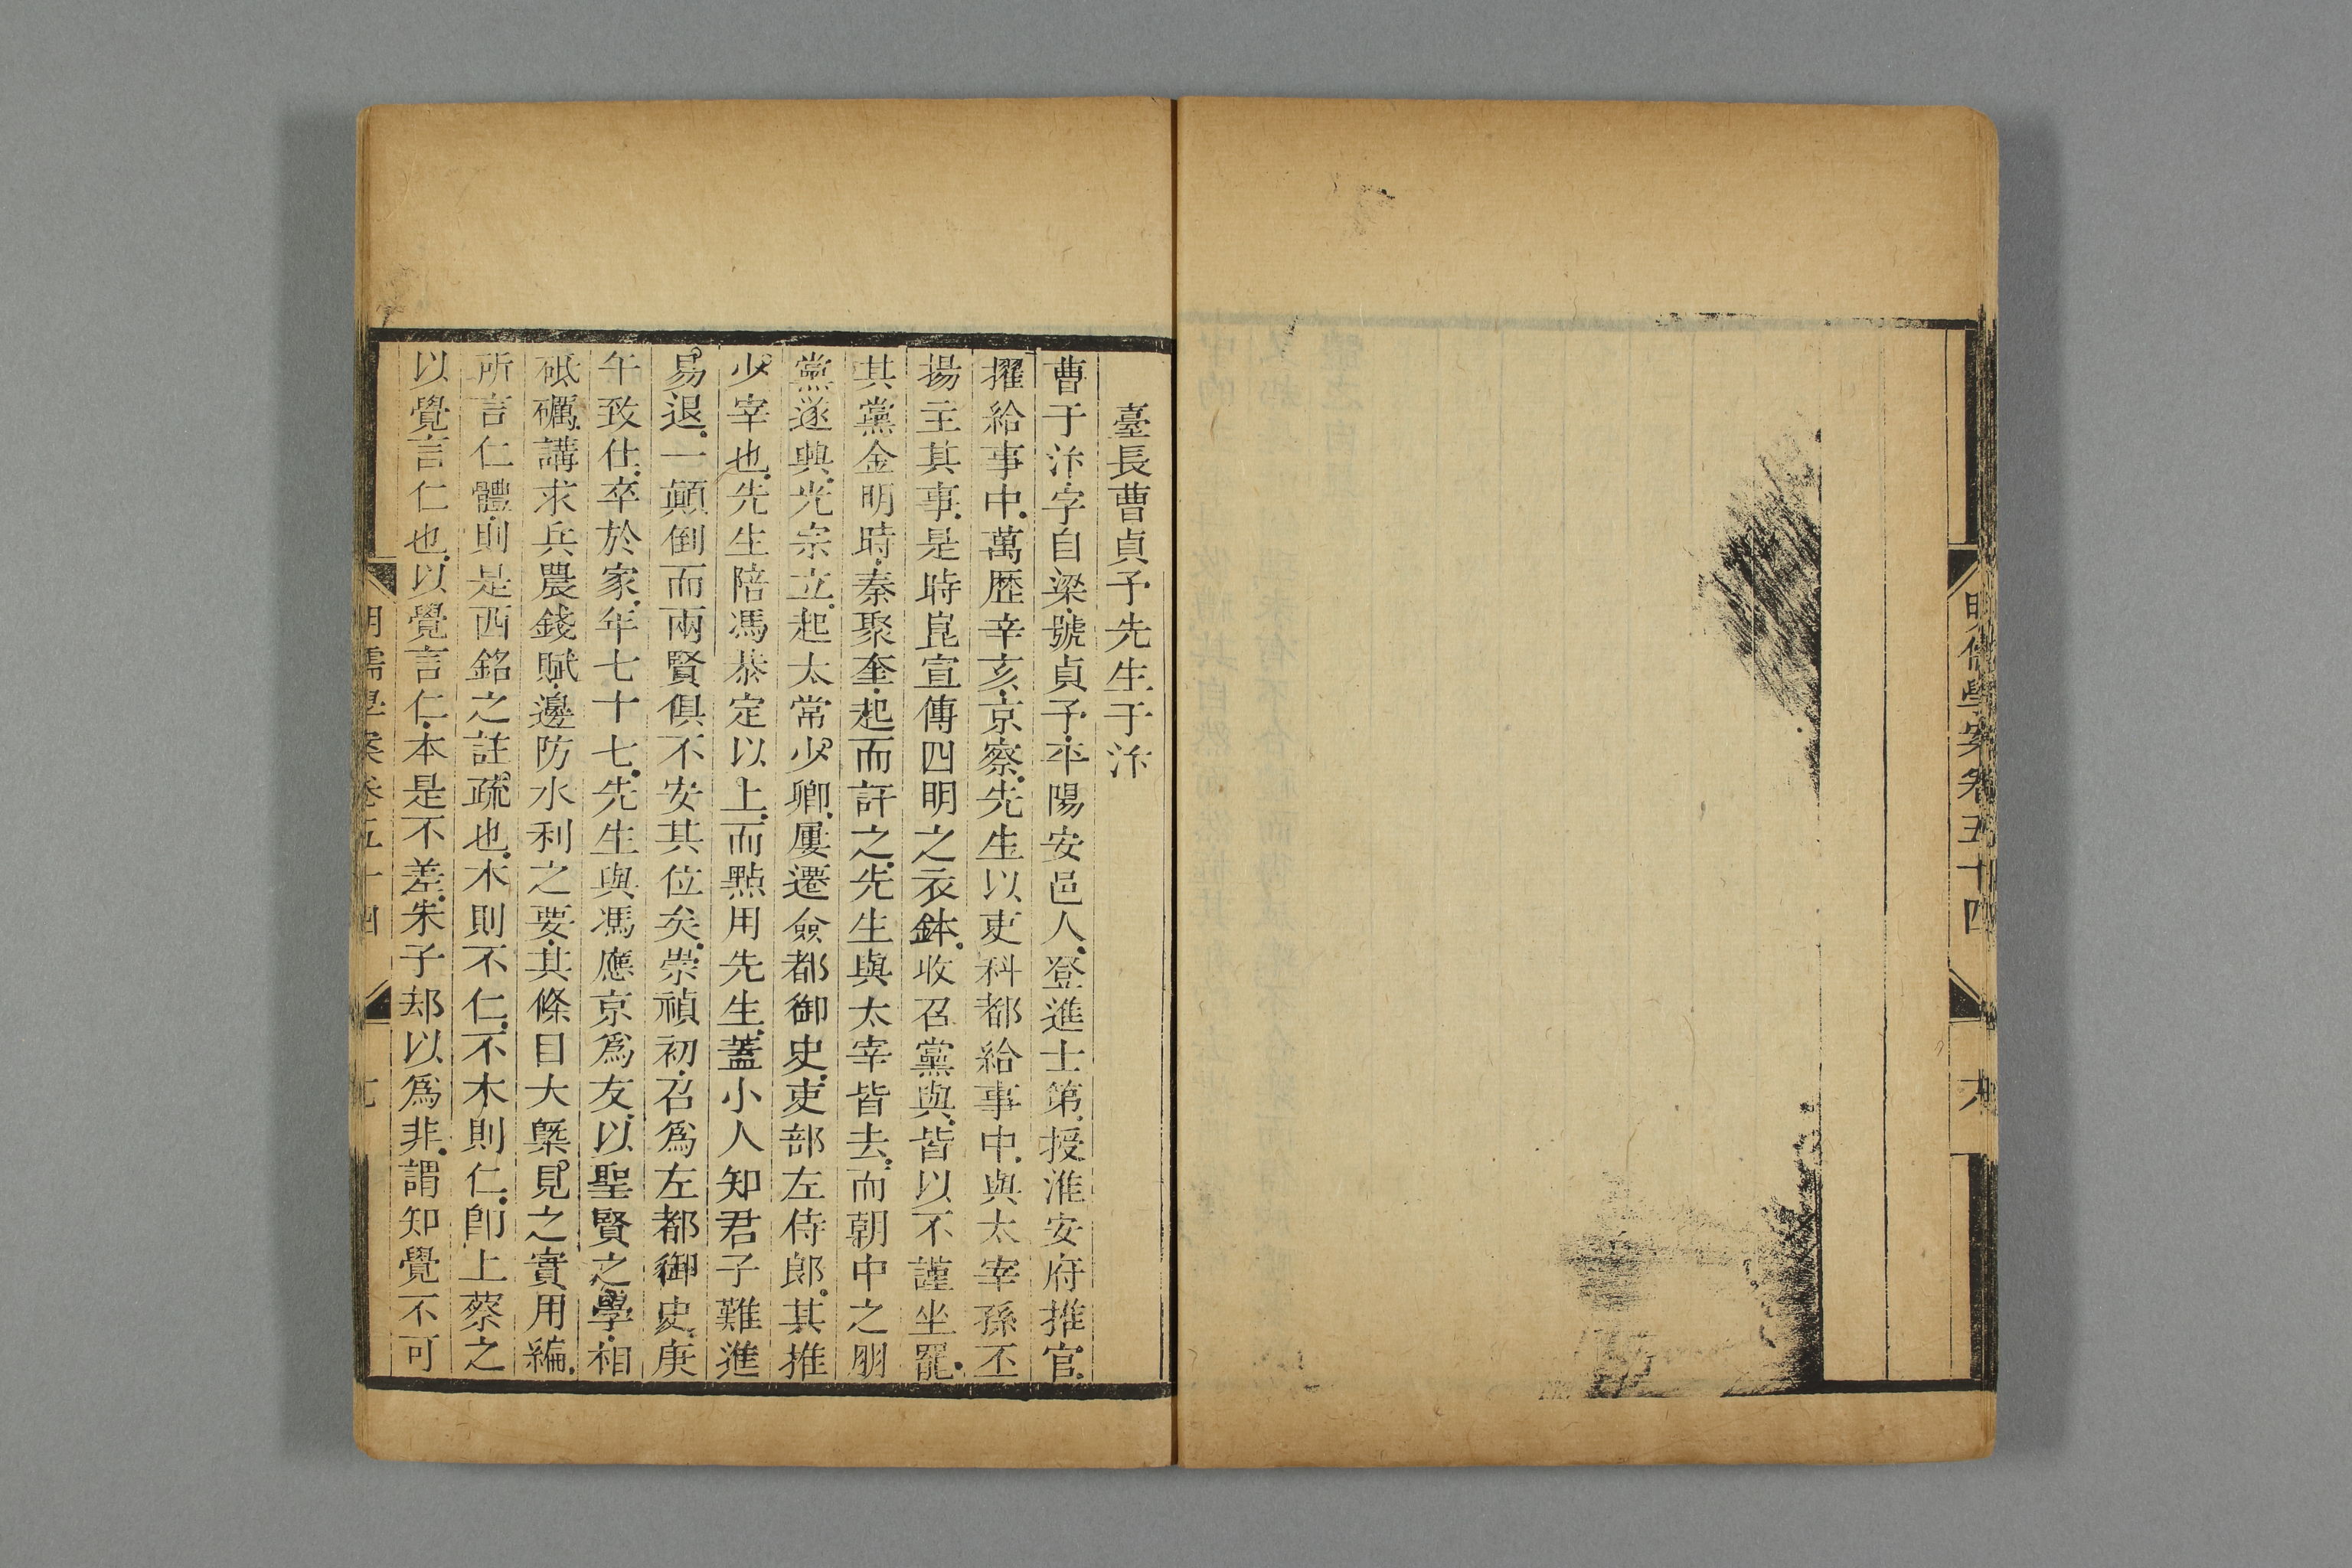 明儒學案卷五十四
六
臺長曹貞予先生于汴
曹于汴字自梁號貞予平陽安邑人登進士第授淮安府推官
擢給事中萬歷辛亥京察先生以吏科都給事中與太宰孫丕
揚主其事是時崑宣傳四明之衣鉢收召黨與皆以不謹坐罷
其黨金明時秦聚奎起而訐之先生與太宰皆去而朝中之朋
黨遂興光宗立起太常少卿屢遷僉都御史吏部左侍郎其推
少宰也先生陪馮恭定以上而點用先生蓋小人知君子難進
易退一顛倒而兩賢俱不安其位矣崇禎初召爲左都御史庚
午致仕卒於家年七十七先生與馮應京爲友以聖賢之學相
砥礪講求兵農錢賦邊防水利之要其條目大槩見之實用編
所言仁體則是西銘之註疏也木則不仁不木則仁卽上蔡之
以覺言仁也以覺言仁本是不差朱子却以爲非謂知覺不可
明儒學案卷五十四